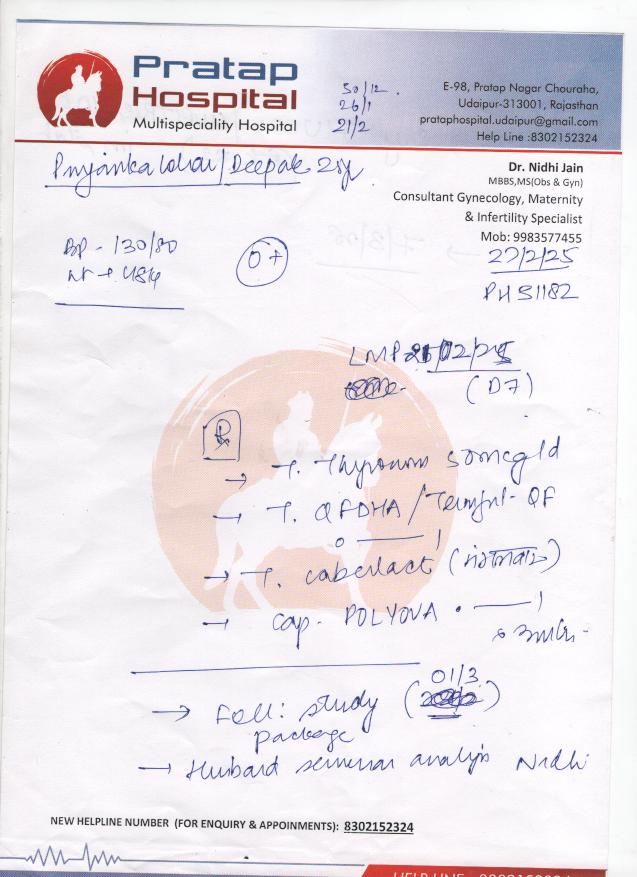 Pratap
Hospital
Multispeciality Hospital
30/12.
26/1
21/2
E-98, Pratap Nagar Chouraha,
Udaipur-313001, Rajasthan
prataphospital.udaipur@gmail.com
Help Line :8302152324
Priyanka Lohar/Deepak
Dr. Nidhi Jain
MBBS,MS(Obs & Gyn)
Consultant Gynecology, Maternity
& Infertility Specialist
Mob: 9983577455
27/2/25
PH 51182
BP - 130/80
O+
LMP
(D7)
Rx
→ T. Thyronorm 50mcg
→ T. QFDHA / -QF
o —— 1
→ T. caberlact (मंगलवार)
→ cap. POLYOVA • —— 1
01/3
→ Foll: study
package
→ Husband semen analysis Nidhi
NEW HELPLINE NUMBER (FOR ENQUIRY & APPOINMENTS): 8302152324